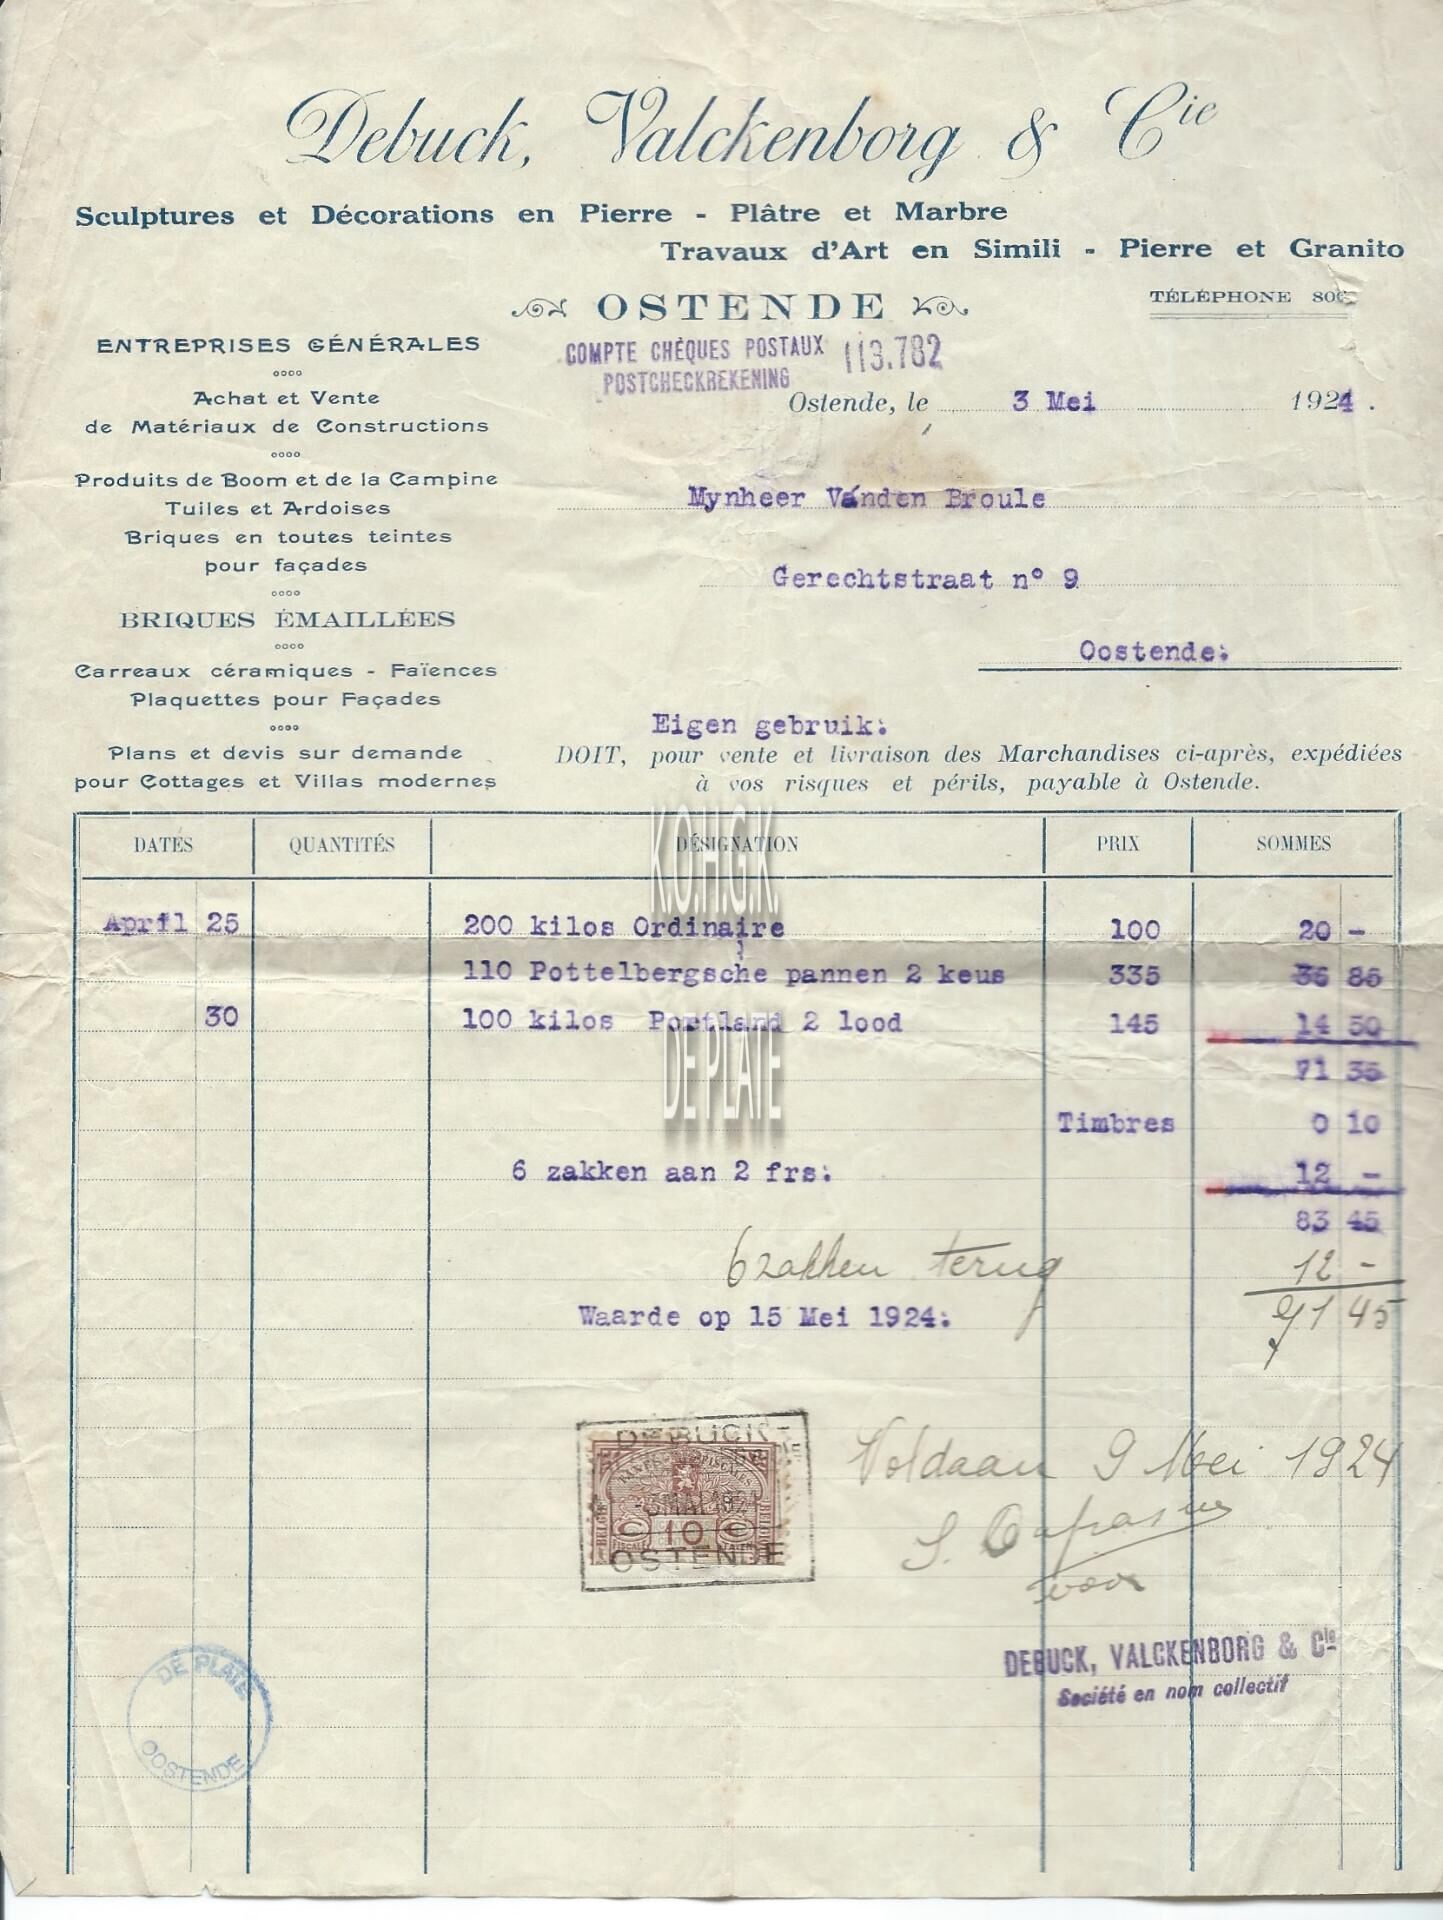 Debuck, Valckenborg & Cie
Sculptures et Décorations en Pierre - Plâtre et Marbre
Travaux d'Art en Simili - Pierre et Granito
OSTENDE
TÉLÉPHONE
COMPTE CHÈQUES POSTAUX 113.782
POSTCHECKREKENING
Ostende, le 3 Mei 1924.
ENTREPRISES GÉNÉRALES
Achat et Vente
de Matériaux de Constructions
Produits de Boom et de la Campine
Tuiles et Ardoises
Briques en toutes teintes
pour façades
BRIQUES ÉMAILLÉES
Carreaux céramiques - Faïences
Plaquettes pour Façades
Plans et devis sur demande
pour Cottages et Villas modernes
Mynheer Vanden Broule
Gerechtstraat n° 9
Oostende:
Eigen gebruik:
DOIT, pour vente et livraison des Marchandises ci-après, expédiées
à vos risques et périls, payable à Ostende.
DATES QUANTITÉS DÉSIGNATION PRIX SOMMES
K.O.H.G.K.
April 25 200 kilos Ordinaire 100 20 -
110 Pottelbergsche pannen 2 keus 335 36 85
30 100 kilos Portland 2 lood 145 14 50
DE PLATE
71 35
Timbres 0 10
6 zakken aan 2 frs: 12 -
83 45
6 zakken terug 12 -
71 45
Waarde op 15 Mei 1924:
DEBUCK
MAI 1924
BELGIE 10 BELGIQUE
OSTENDE
Voldaan 9 Mei 1924
voor
DEBUCK, VALCKENBORG & Cie
Société en nom collectif
DE PLATE
OOSTENDE